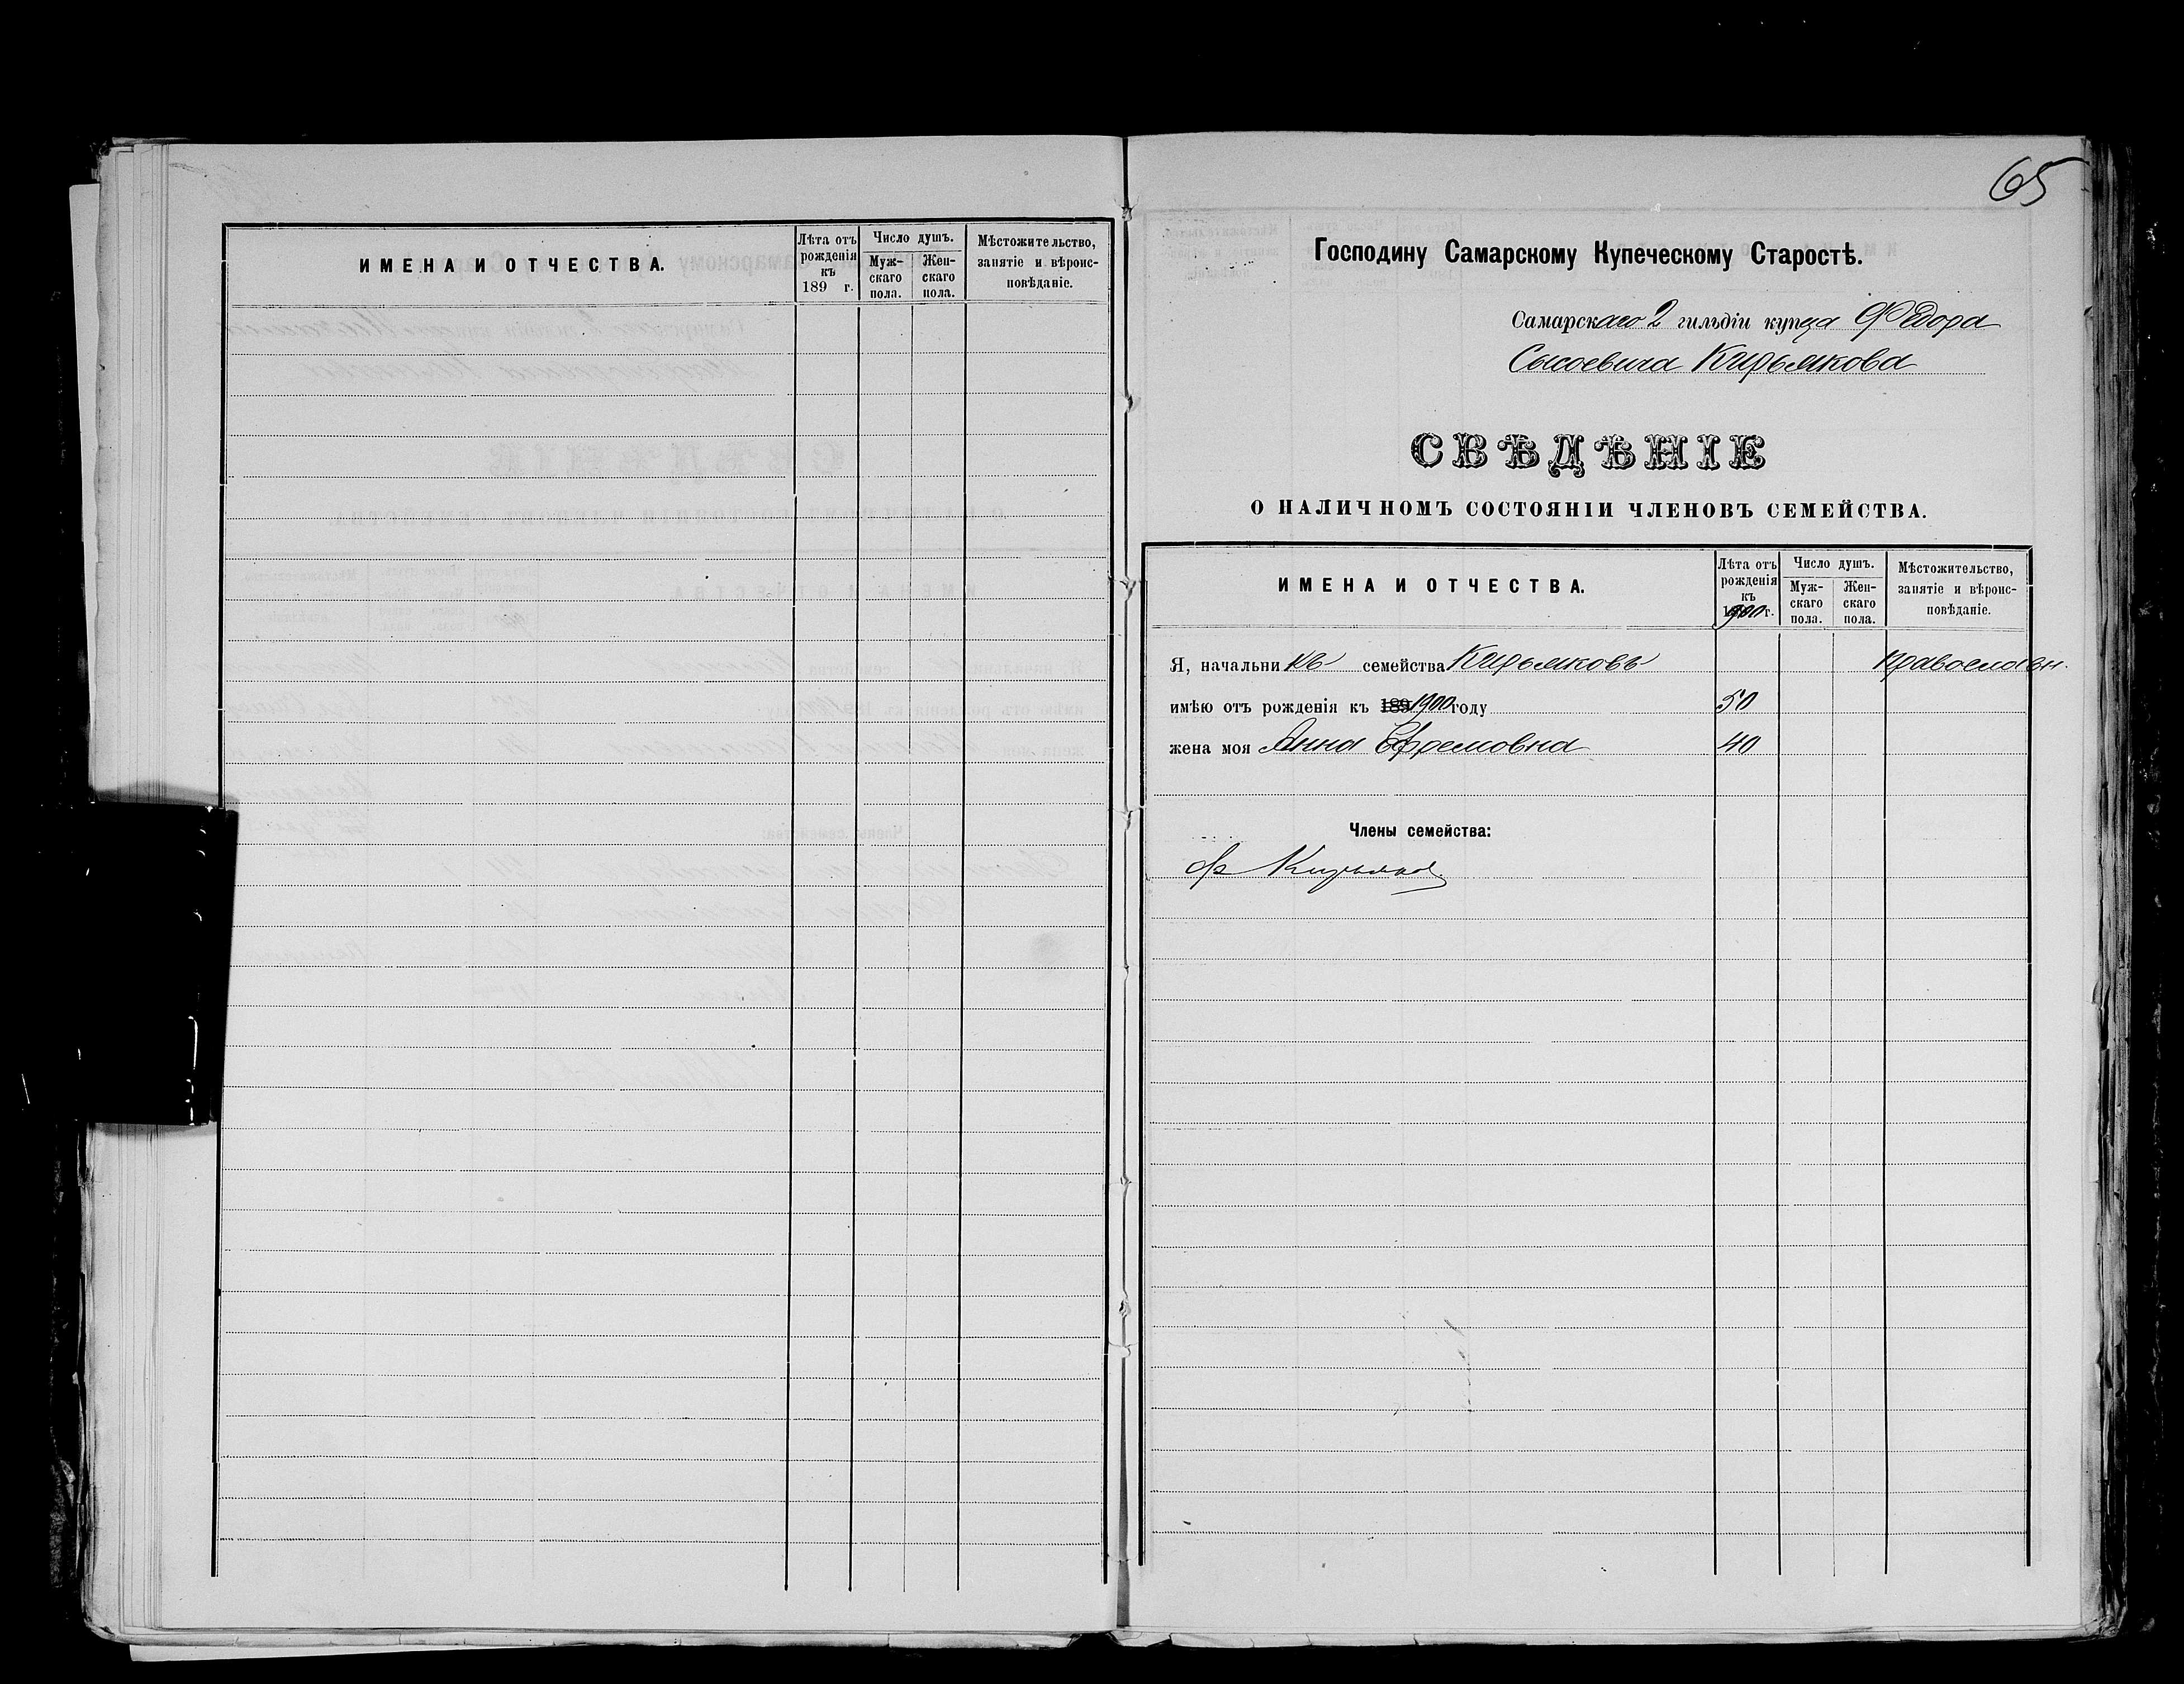 ИМЕНА И ОТЧЕСТВА.
Лѣта отъ рожденія къ 189 г.
Число душъ.
Мужскаго пола.
Женскаго пола.
Мѣстожительство, занятіе и вѣроисповѣданіе.
65
Господину Самарскому Купеческому Старостѣ.
Самарскаго 2 гильдіи купца Федора
Сысоевича Кирьякова
СВѢДѢНІЕ
О НАЛИЧНОМЪ СОСТОЯНІИ ЧЛЕНОВЪ СЕМЕЙСТВА.
ИМЕНА И ОТЧЕСТВА.
Лѣта отъ рожденія къ 1900 г.
Число душъ.
Мужскаго пола.
Женскаго пола.
Мѣстожительство, занятіе и вѣроисповѣданіе.
Я, начальникъ семейства Кирьяковъ православн.
имѣю отъ рожденія къ 189 1900 году 50
жена моя Анна Ефремовна 40
Члены семейства:
Ф Кирьяков